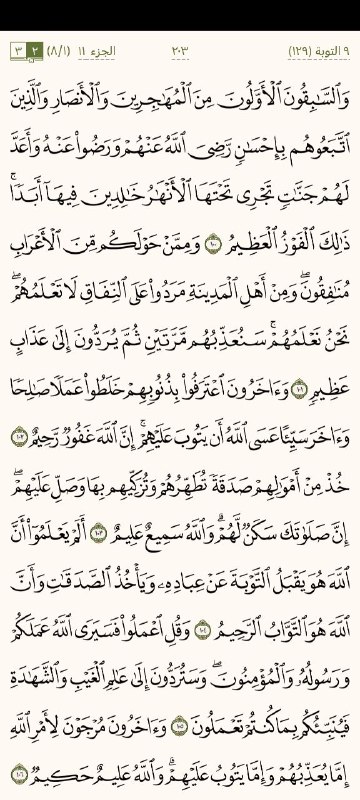 ٩ التوبة (١٢٩) ٢٠٣ الجزء ١١ (٨/١) ٢ ٣
وَٱلسَّٰبِقُونَ ٱلۡأَوَّلُونَ مِنَ ٱلۡمُهَٰجِرِينَ وَٱلۡأَنصَارِ وَٱلَّذِينَ
ٱتَّبَعُوهُم بِإِحۡسَٰنٖ رَّضِيَ ٱللَّهُ عَنۡهُمۡ وَرَضُواْ عَنۡهُ وَأَعَدَّ
لَهُمۡ جَنَّٰتٖ تَجۡرِي تَحۡتَهَا ٱلۡأَنۡهَٰرُ خَٰلِدِينَ فِيهَآ أَبَدٗاۚ
ذَٰلِكَ ٱلۡفَوۡزُ ٱلۡعَظِيمُ ١٠٠ وَمِمَّنۡ حَوۡلَكُم مِّنَ ٱلۡأَعۡرَابِ
مُنَٰفِقُونَۖ وَمِنۡ أَهۡلِ ٱلۡمَدِينَةِ مَرَدُواْ عَلَى ٱلنِّفَاقِ لَا تَعۡلَمُهُمۡۖ
نَحۡنُ نَعۡلَمُهُمۡۚ سَنُعَذِّبُهُم مَّرَّتَيۡنِ ثُمَّ يُرَدُّونَ إِلَىٰ عَذَابٍ
عَظِيمٖ ١٠١ وَءَاخَرُونَ ٱعۡتَرَفُواْ بِذُنُوبِهِمۡ خَلَطُواْ عَمَلٗا صَٰلِحٗا
وَءَاخَرَ سَيِّئًا عَسَى ٱللَّهُ أَن يَتُوبَ عَلَيۡهِمۡۚ إِنَّ ٱللَّهَ غَفُورٞ رَّحِيمٌ ١٠٢
خُذۡ مِنۡ أَمۡوَٰلِهِمۡ صَدَقَةٗ تُطَهِّرُهُمۡ وَتُزَكِّيهِم بِهَا وَصَلِّ عَلَيۡهِمۡۖ
إِنَّ صَلَوٰتَكَ سَكَنٞ لَّهُمۡۗ وَٱللَّهُ سَمِيعٌ عَلِيمٌ ١٠٣ أَلَمۡ يَعۡلَمُوٓاْ أَنَّ
ٱللَّهَ هُوَ يَقۡبَلُ ٱلتَّوۡبَةَ عَنۡ عِبَادِهِۦ وَيَأۡخُذُ ٱلصَّدَقَٰتِ وَأَنَّ
ٱللَّهَ هُوَ ٱلتَّوَّابُ ٱلرَّحِيمُ ١٠٤ وَقُلِ ٱعۡمَلُواْ فَسَيَرَى ٱللَّهُ عَمَلَكُمۡ
وَرَسُولُهُۥ وَٱلۡمُؤۡمِنُونَۖ وَسَتُرَدُّونَ إِلَىٰ عَٰلِمِ ٱلۡغَيۡبِ وَٱلشَّهَٰدَةِ
فَيُنَبِّئُكُم بِمَا كُنتُمۡ تَعۡمَلُونَ ١٠٥ وَءَاخَرُونَ مُرۡجَوۡنَ لِأَمۡرِ ٱللَّهِ
إِمَّا يُعَذِّبُهُمۡ وَإِمَّا يَتُوبُ عَلَيۡهِمۡۗ وَٱللَّهُ عَلِيمٌ حَكِيمٞ ١٠٦